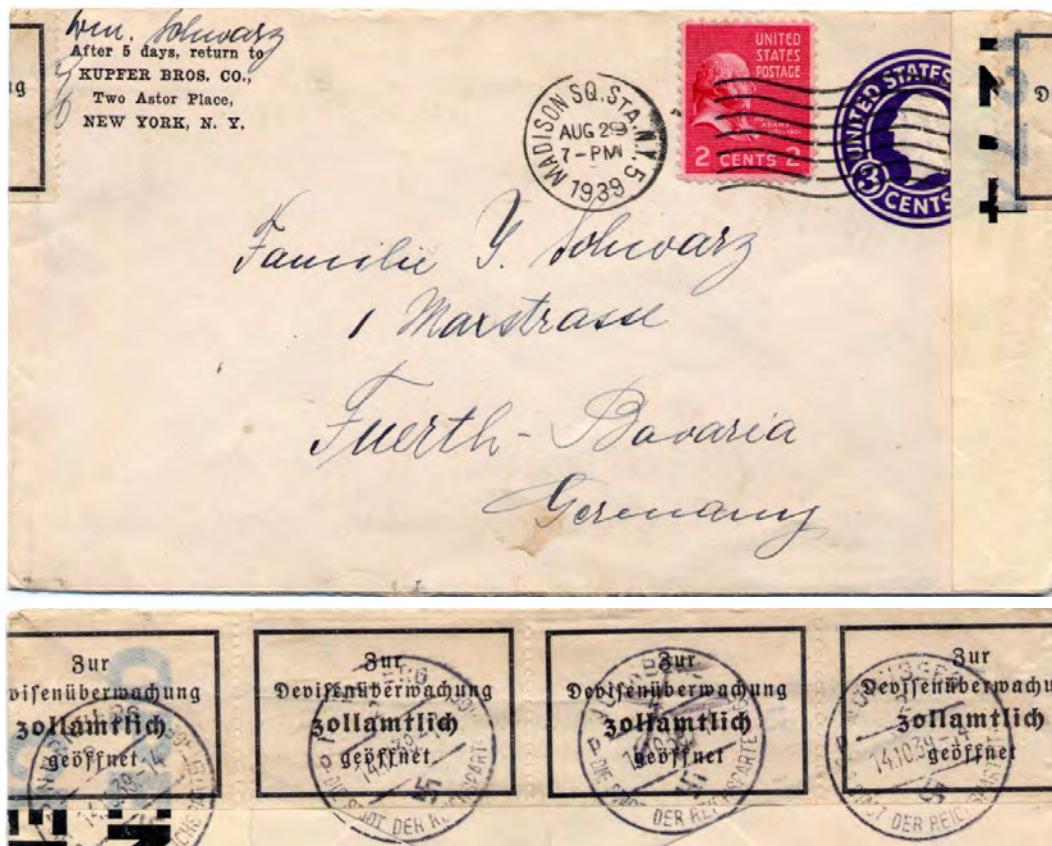 Wm. Schwarz
After 5 days, return to
KUPFER BROS. CO.,
Two Astor Place,
NEW YORK, N. Y.
MADISON SQ. STA. N.Y. 5
AUG 29
7-PM
1939
UNITED
STATES
POSTAGE
ADAMS
2 CENTS 2
UNITED STATES
3
CENTS
Familie Y. Schwarz
1 Marstrasse
Fuerth - Bavaria
Germany
Zur
Devisenüberwachung
zollamtlich
geöffnet
Zur
Devisenüberwachung
zollamtlich
geöffnet
Zur
Devisenüberwachung
zollamtlich
geöffnet
Zur
Devisenüberwachu
zollamtlich
geöffnet
14.10.39
DIE STADT DER REICHSPARTE
14.10.39-14
STADT DER REICHSPARTE